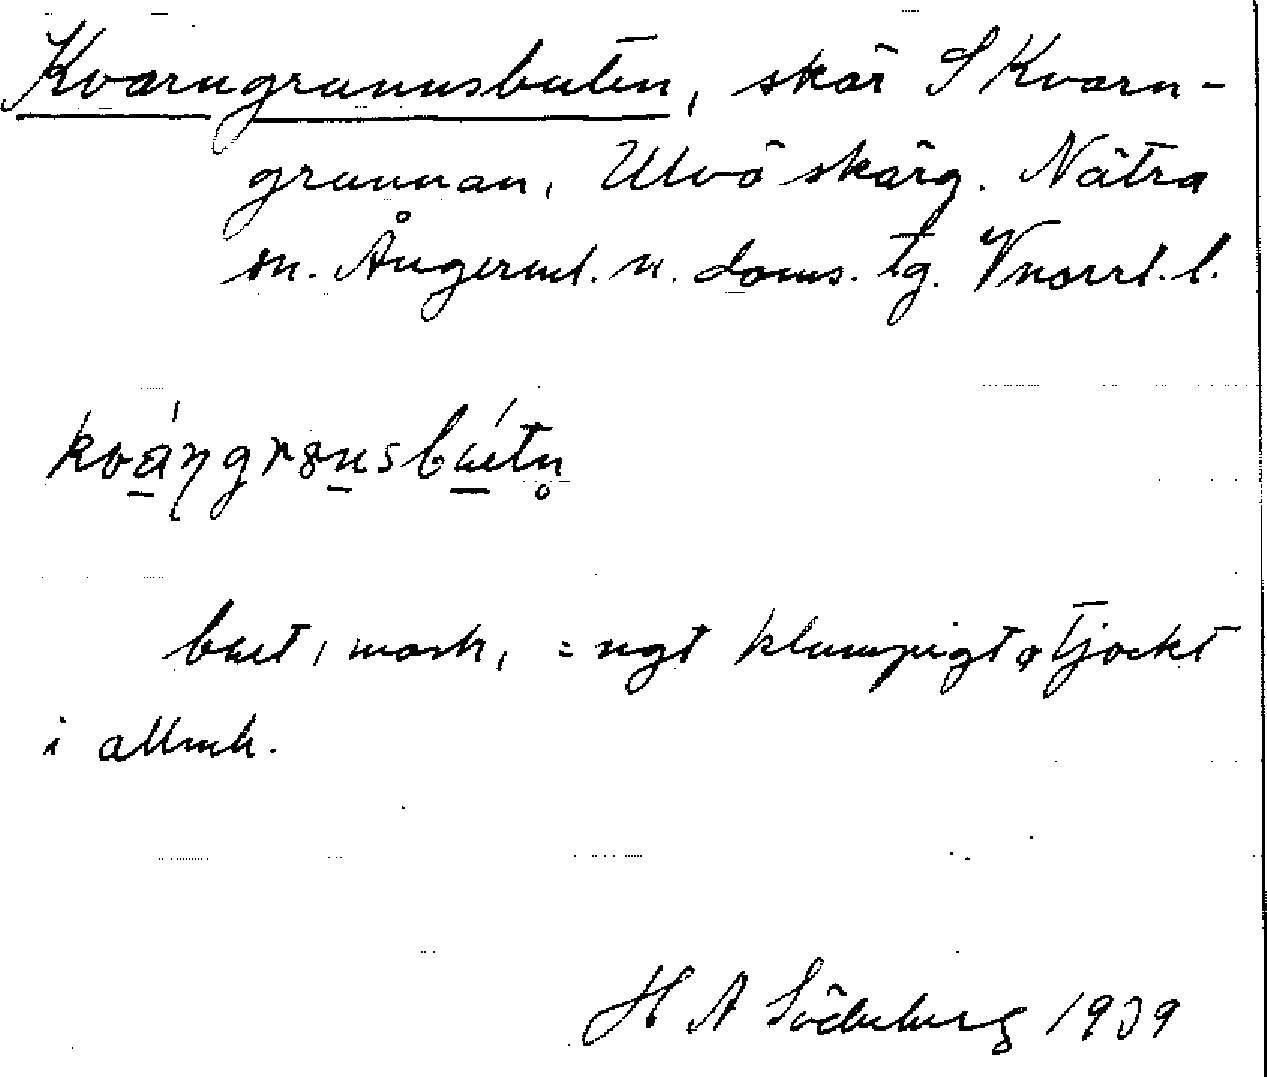 Kvarngrunnsbuten, skär S Kvarn-
grunnan, Ulvö skärg. Nätra
sn. Ångerml. n. doms. tg. Vnorrl. l.
but, mask, = ngt klumpigt o tjockt
i allmh.
H A Söderberg 1939